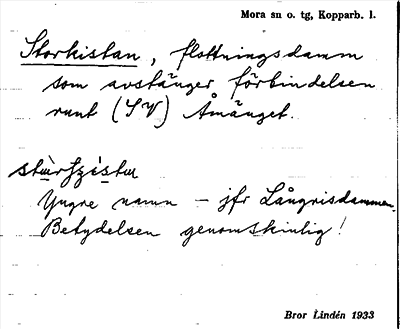 Mora sn o. tg, Kopparb. l.
Storkistan, flottningsdamm
som avstänger förbindelsen
runt (SV) Åmänget.
Yngre namn – jfr Långrisdammen.
Betydelsen genomskinlig!
Bror Lindén 1933